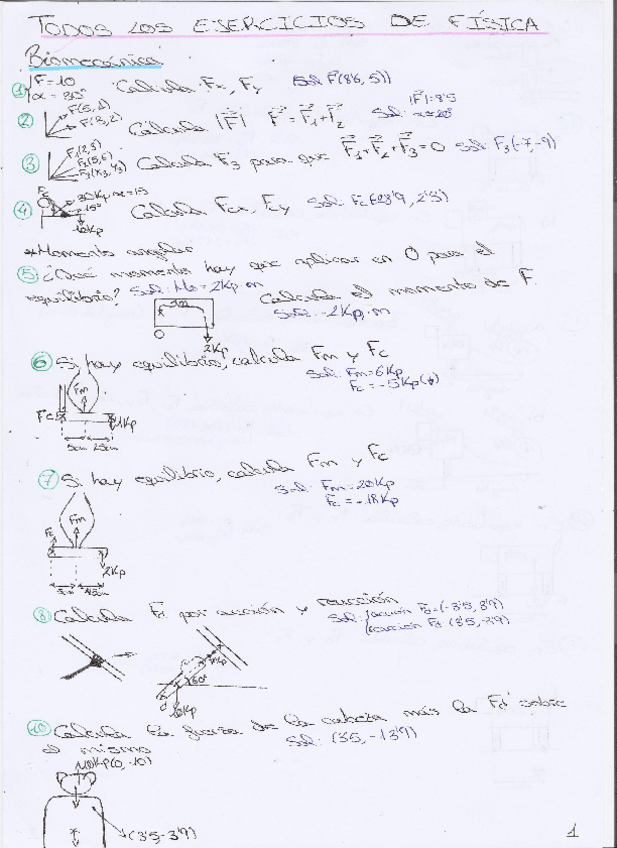 TODOS LOS EJERCICIOS DE FÍSICA
Biomecánica
1) F=10 Calcula Fx, Fy Sol: F(8'6, 5)
α=30°
2) F(5,1) F(3,2) Calcula |F| F=F1+F2 Sol: |F|=8'5
3) F1(2,3) Calcula F3 para que F1+F2+F3=0 Sol: F3(-7,-9)
F2(5,6)
F3(x3,y3)
4) Fc 30Kp 15° Calcula Fcx, Fcy
10Kp
*Momento angular
5) ¿Qué momento hay que aplicar en O para el
equilibrio? Sol: Mo=2Kp·m Calcula el momento de F.
1m Sol: -2Kp·m
O 2Kp
6) Si hay equilibrio, calcula Fm y Fc
Sol: Fm=6Kp
Fc=-5Kp(↓)
Fm
Fc 1Kp
5cm 25cm
7) Si hay equilibrio, calcula Fm y Fc
Sol: Fm=20Kp
Fc=-18Kp
Fm
Fc
2Kp
45cm
8) Calcula Fd por acción y reacción
Sol: acción Fd=(-3'5, 3'9)
reacción Fd (3'5, -3'9)
60°
10Kp
10) Calcula la fuerza de la cabeza más la Fd sobre
el mismo Sol: (3'5, -13'9)
10Kp(0,-10)
(3'5,-3'9)
1